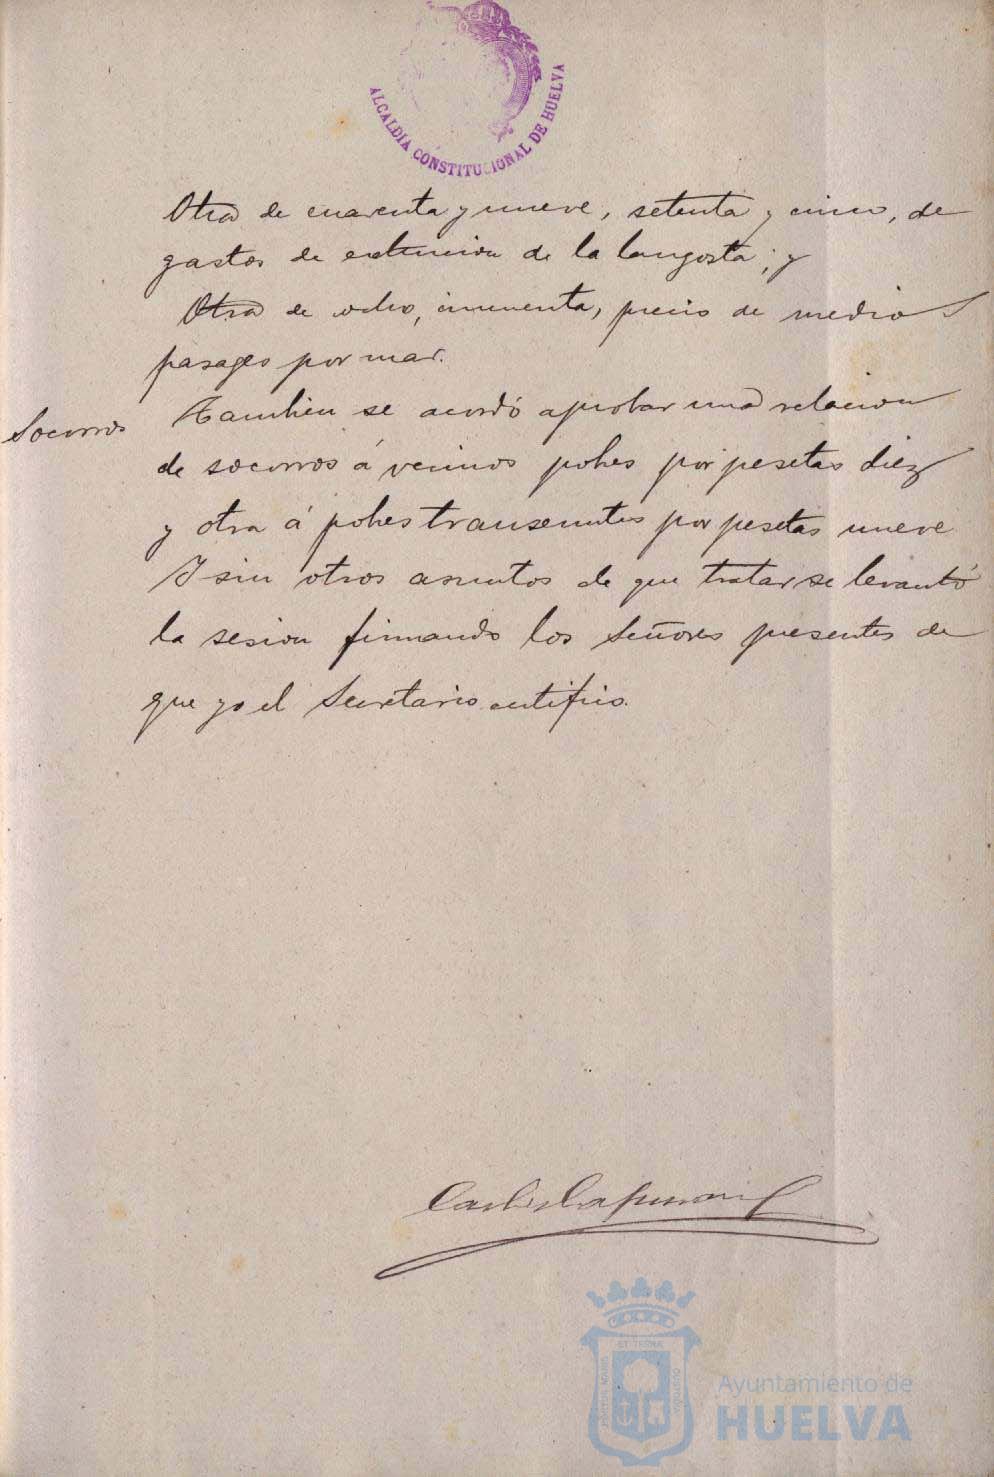 ALCALDIA CONSTITUCIONAL DE HUELVA
Otra de cuarenta y nueve, setenta y cinco, de
gastos de extincion de la langosta; y
Otra de ocho, cincuenta, precio de medios
pasages por mar.
Socorros
Tambien se acordó aprobar una relacion
de socorros á vecinos pobres por pesetas diez
y otra á pobres transeuntes por pesetas nueve
Y sin otros asuntos de que tratar se levantó
la sesion firmando los Señores presentes de
que yo el Secretario certifico.
Ayuntamiento de
HUELVA